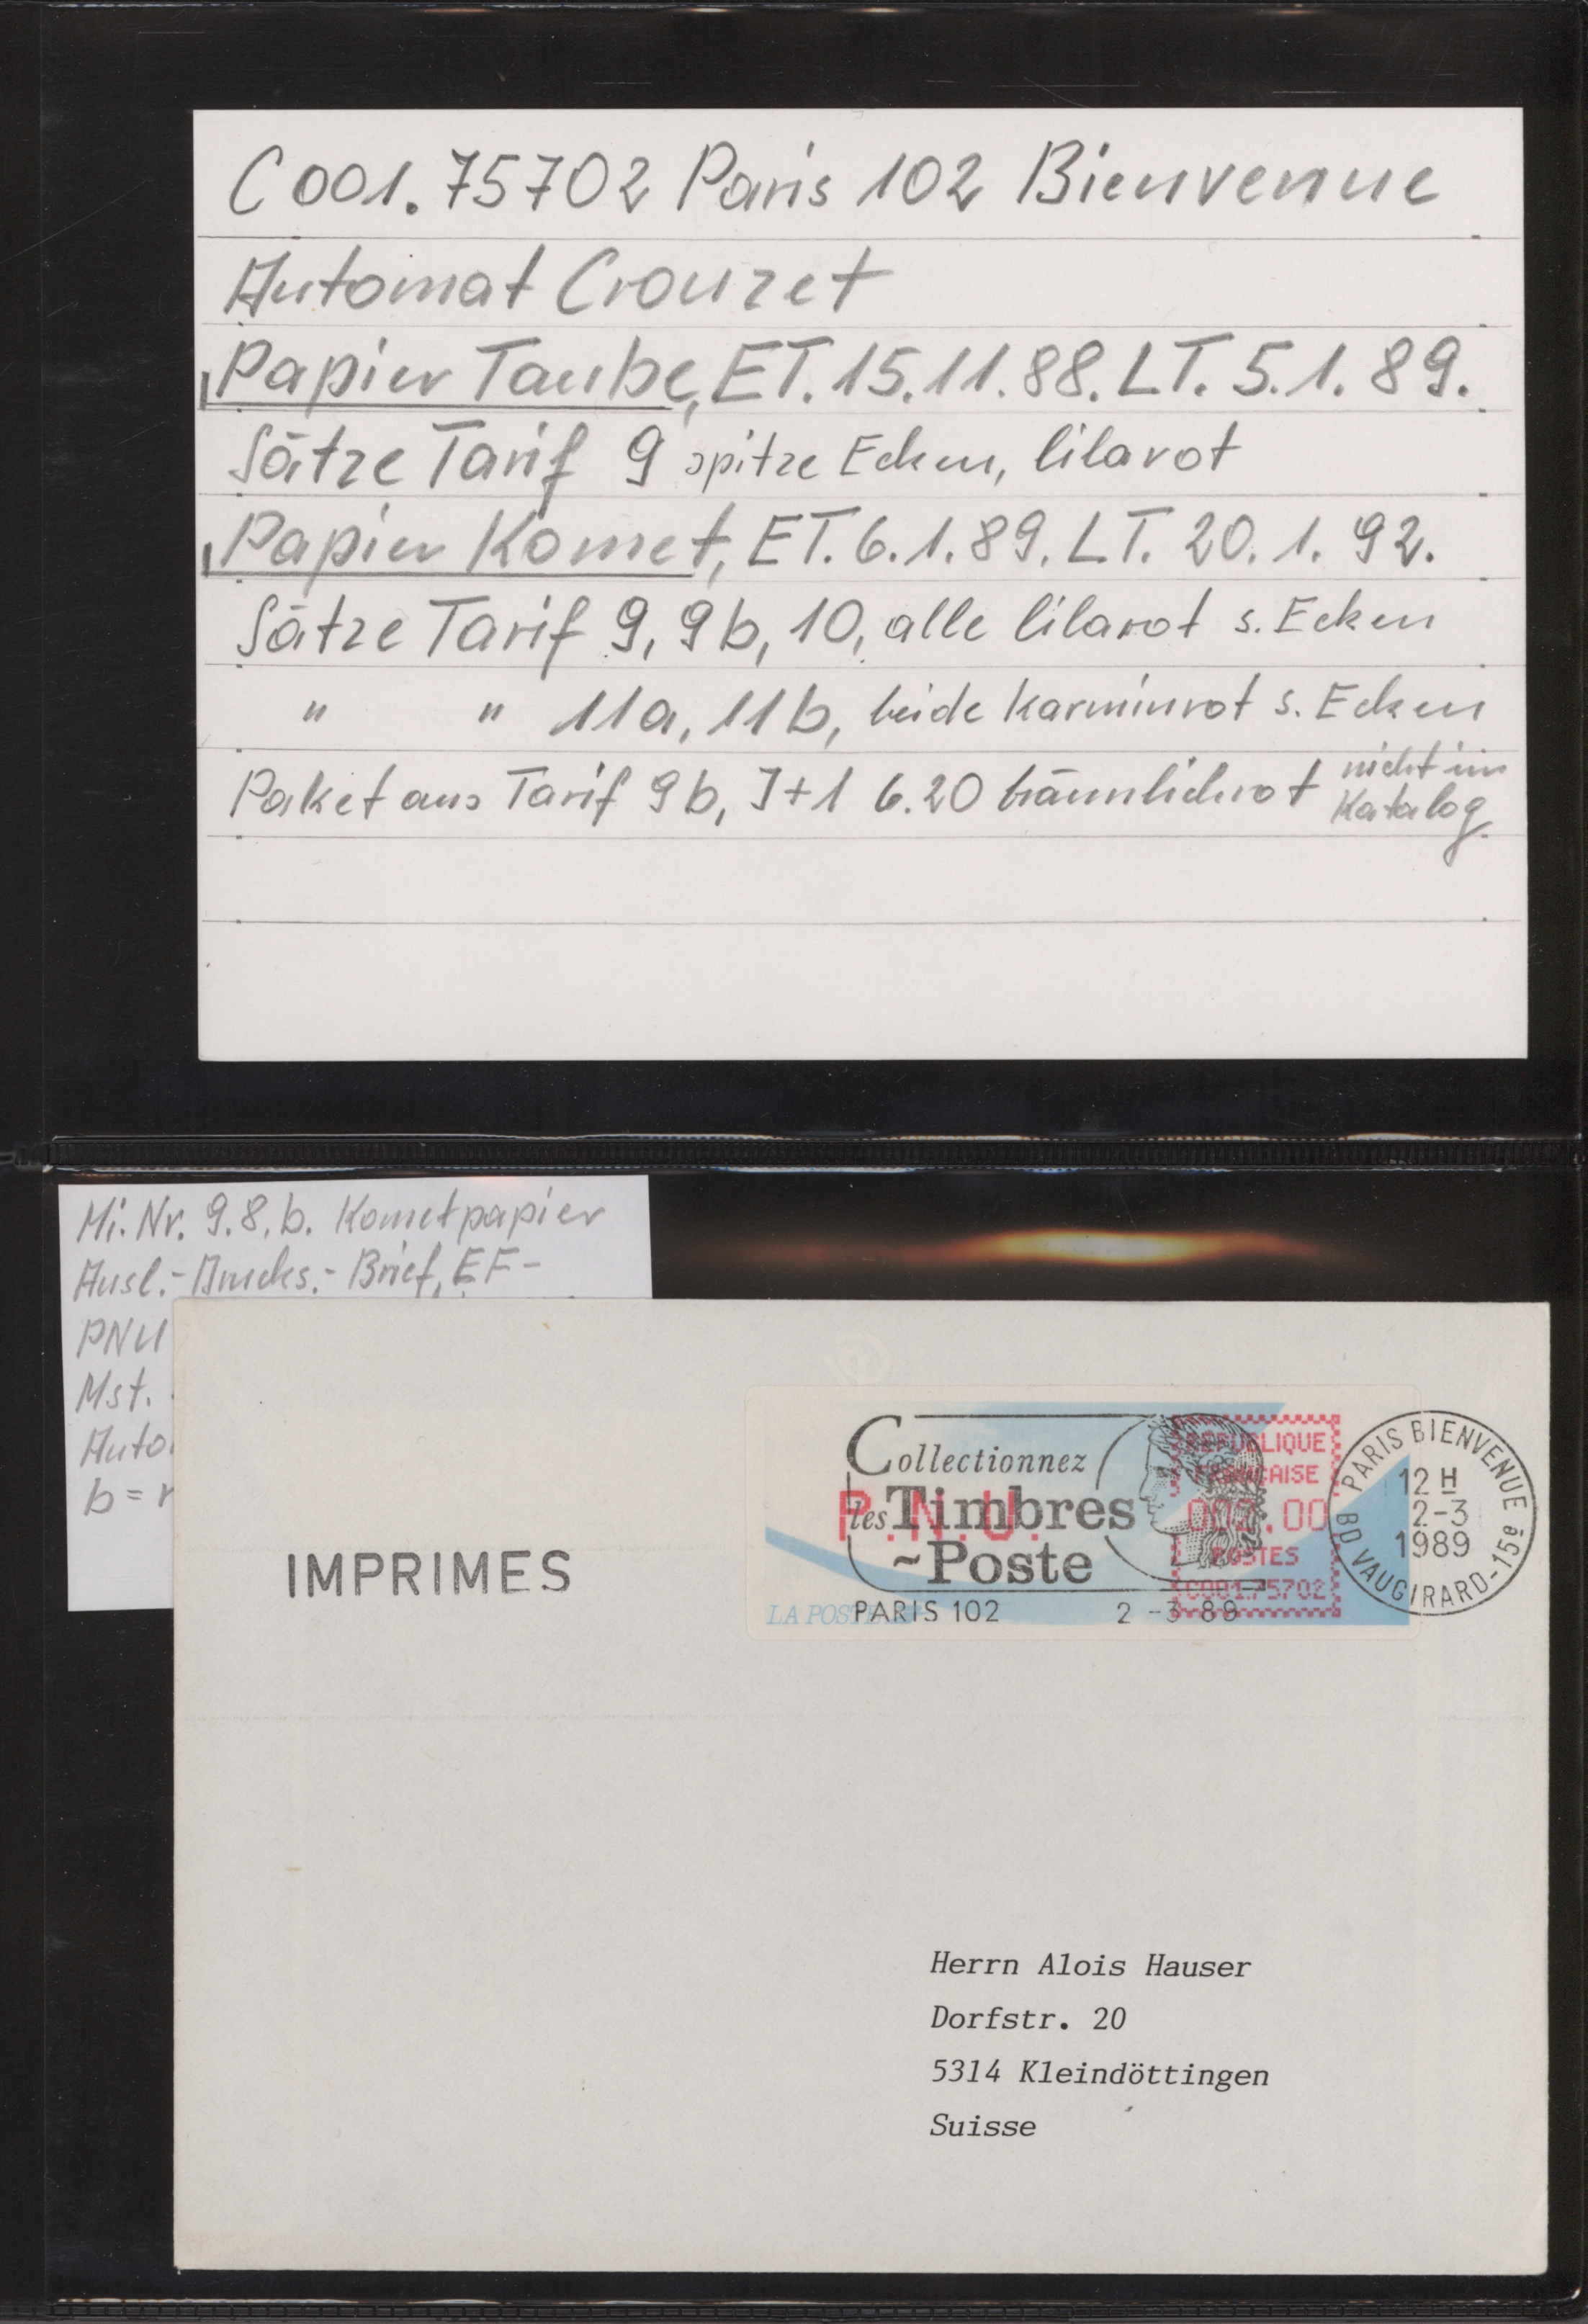 C001.75702 Paris 102 Bienvenue
Automat Crouzet
Papier Taube, ET. 15.11.88. LT. 5.1.89.
Sätze Tarif 9 spitze Ecken, lilarot
Papier Komet, ET. 6.1.89. LT. 20.1.92.
Sätze Tarif 9, 9b, 10, alle lilarot s. Ecken
" " 11a, 11b, beide karminrot s. Ecken
Paket aus Tarif 9b, J+1 6.20 bräunlichrot nicht im
Katalog
Mi. Nr. 9.8.b. Kometpapier
Ausl.-Drucks.-Brief, EF-
PNU
Mst.
Auto
b =
IMPRIMES
Collectionnez
les Timbres
~Poste
PARIS 102 2-3 89
P.N.U.
LA POSTE
REPUBLIQUE
FRANCAISE
002.00
POSTES
C001.75702
PARIS BIENVENUE
12 H
2-3
1989
BD VAUGIRARD-15e
Herrn Alois Hauser
Dorfstr. 20
5314 Kleindöttingen
Suisse